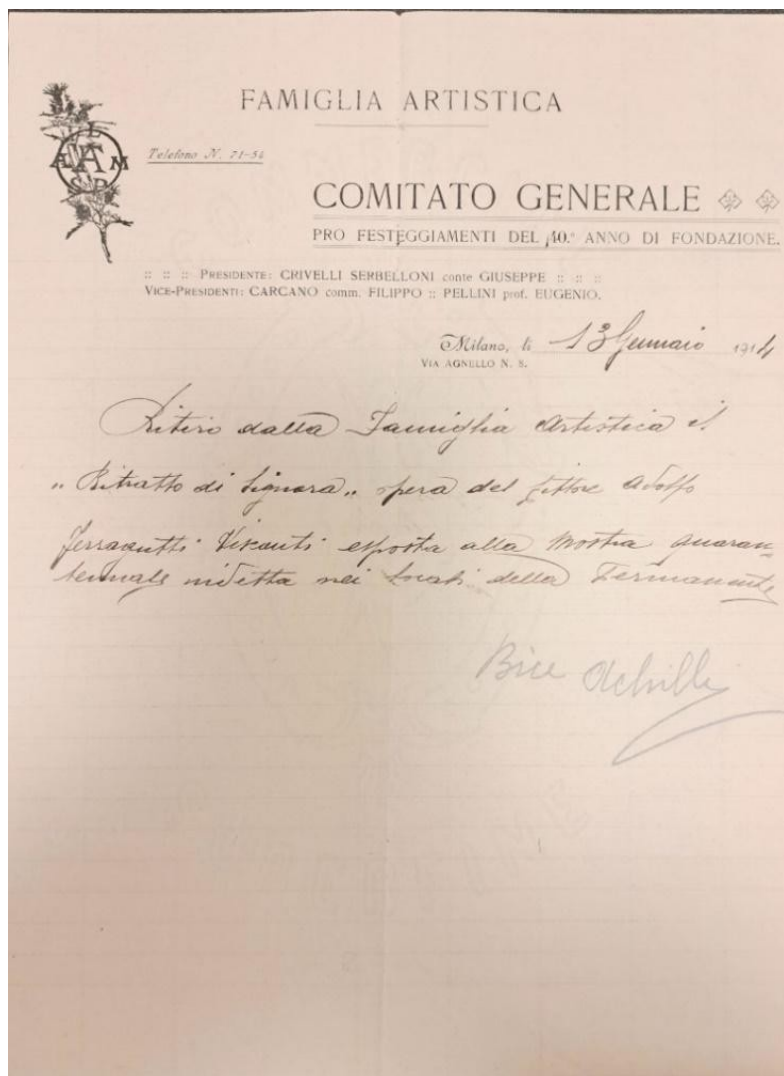 FAMIGLIA ARTISTICA
L
A FA M
S P
Telefono N. 71-54
COMITATO GENERALE
PRO FESTEGGIAMENTI DEL 40.º ANNO DI FONDAZIONE.
:: :: :: PRESIDENTE: CRIVELLI SERBELLONI conte GIUSEPPE :: :: ::
VICE-PRESIDENTI: CARCANO comm. FILIPPO :: PELLINI prof. EUGENIO.
Milano, li 13 Gennaio 1914
VIA AGNELLO N. 8.
Ritiro dalla Famiglia Artistica il
„ Ritratto di Signora „ opera del pittore Adolfo
Ferragutti Visconti esposta alla Mostra quaran=
tennale indetta nei locali della Permanente
Bice Achilli